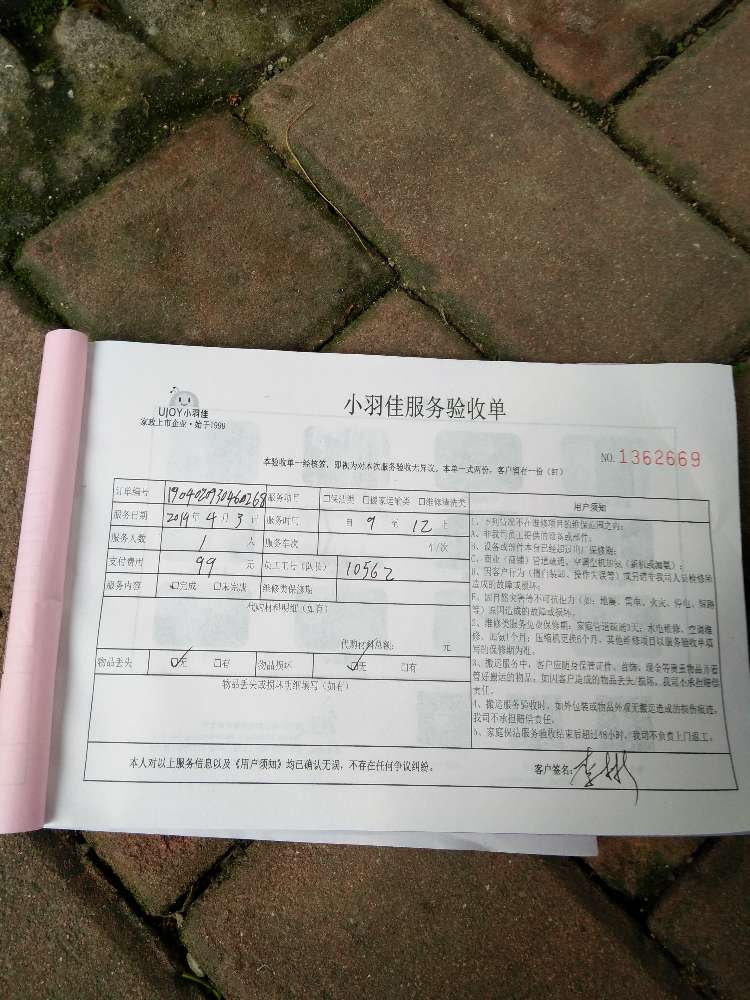 UJOY小羽佳
家政上市企业·始于1998
小羽佳服务验收单
本验收单一经核签，即视为对本次服务验收无异议。本单一式两份，客户留存一份（红）
NO. 1362669
订单编号 190402930460268 服务项目 □保洁类 □搬家运输类 □维修清洗类
服务日期 2019年4月3日 服务时间 自9至12止
服务人数 1 人 服务车次 个/次
支付费用 99 元 员工工号（队长） 10562
服务内容 □完成 □未完成 维修类保修期
代购材料明细（如有）
代购材料总额： 元
物品丢失 ☑无 □有 物品损坏 ☑无 □有
物品丢失或损坏明细填写（如有）
用户须知
1、下列情况不在维修项目的维保范围之内：
A、非我司员工提供的设备或部件；
B、设备或部件本身已经超过厂保修期；
C、商业（店铺）管道疏通、空调空机加氨（新机或漏氟）；
D、因客户行为（擅自装卸、操作失误等）或另请非我司人员检修所
造成的故障或损坏；
E、因自然灾害等不可抗拒力（如：地震、雷电、火灾、停电、短路
等）原因造成的故障或损坏。
2、维修类服务免费保修期：家庭管道疏通3天；水电维修、空调维
修、加氨1个月；压缩机更换6个月。其他维修项目以服务验收单填
写的保修期为准。
3、搬运服务中，客户应随身保管证件、首饰、现金等贵重物品并看
管好搬运的物品。如因客户造成的物品丢失/损坏，我司不承担赔偿
责任。
4、搬运服务验收时，如外包装或物品外观无搬运造成的损伤痕迹，
我司不承担赔偿责任。
5、家庭保洁服务验收结束后超过48小时，我司不负责上门返工。
本人对以上服务信息以及《用户须知》均已确认无误，不存在任何争议纠纷。 客户签名：